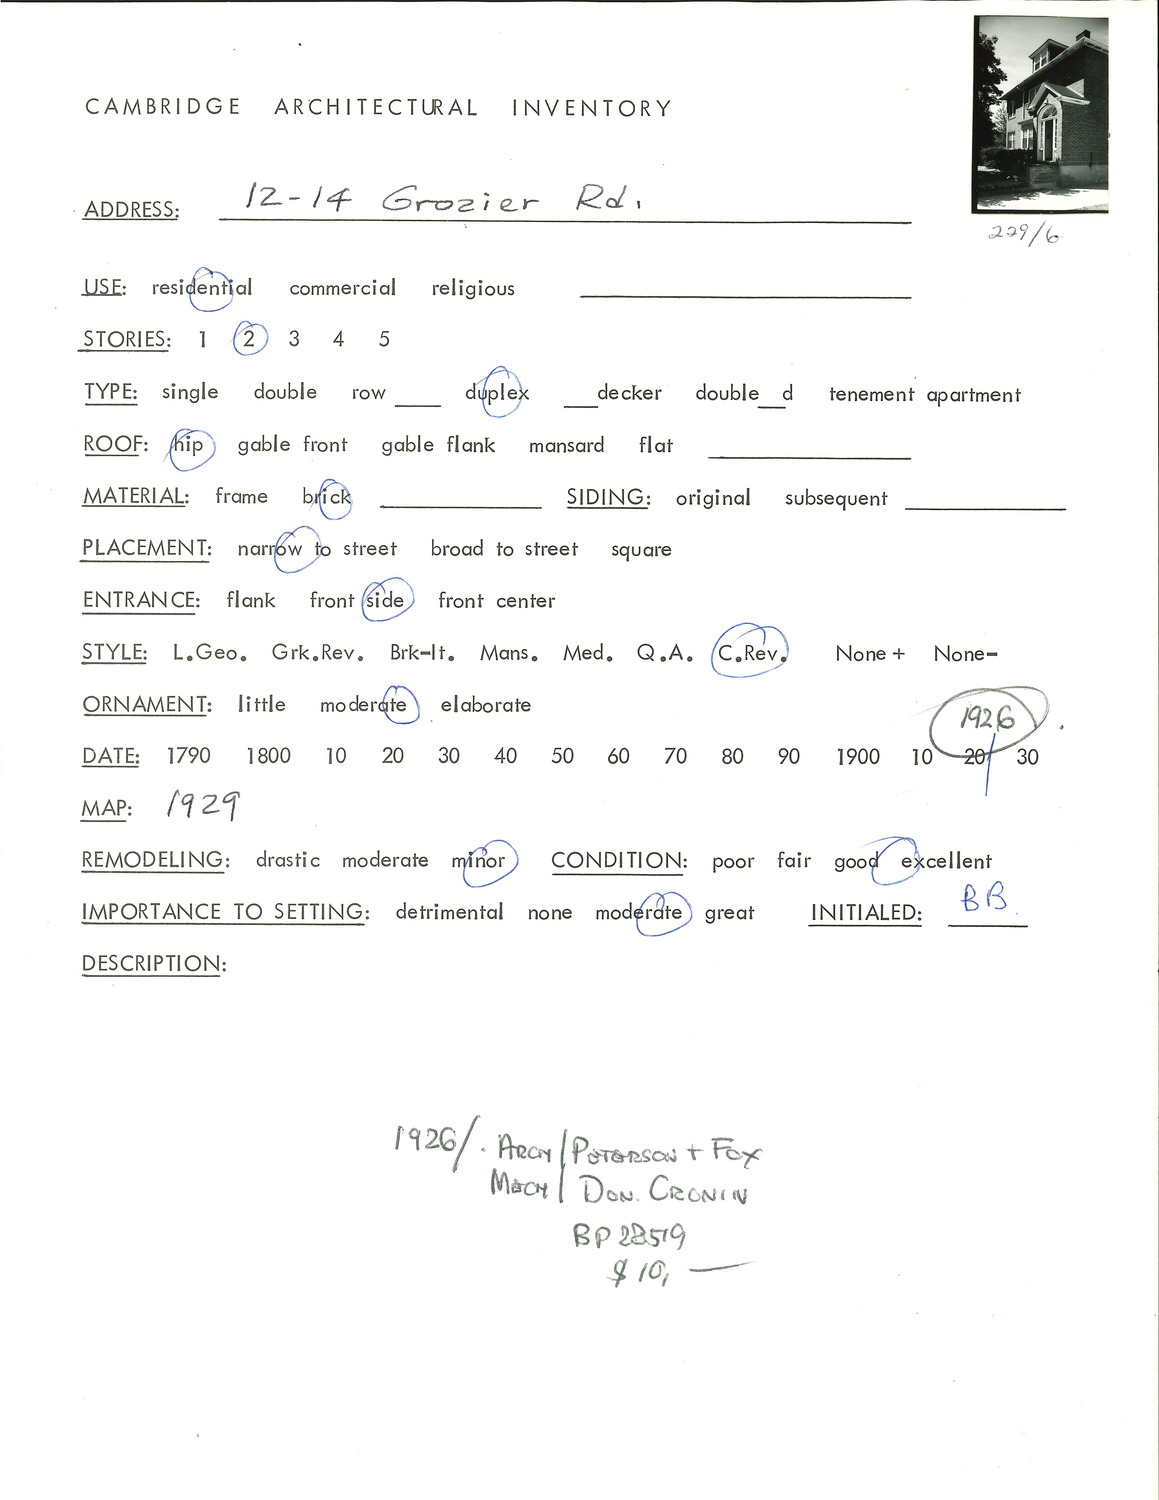 CAMBRIDGE ARCHITECTURAL INVENTORY
ADDRESS: 12-14 Grozier Rd.
229/6
USE: residential commercial religious
STORIES: 1 2 3 4 5
TYPE: single double row ____ duplex ___decker double__d tenement apartment
ROOF: hip gable front gable flank mansard flat
MATERIAL: frame brick SIDING: original subsequent
PLACEMENT: narrow to street broad to street square
ENTRANCE: flank front side front center
STYLE: L.Geo. Grk.Rev. Brk-It. Mans. Med. Q.A. C.Rev. None+ None-
ORNAMENT: little moderate elaborate
1926
DATE: 1790 1800 10 20 30 40 50 60 70 80 90 1900 10 20 30
MAP: 1929
REMODELING: drastic moderate minor CONDITION: poor fair good excellent
IMPORTANCE TO SETTING: detrimental none moderate great INITIALED: BB
DESCRIPTION:
1926/. ARCH/PETERSON + FOX
MECH/ DON. CRONIN
BP 28519
$10, —